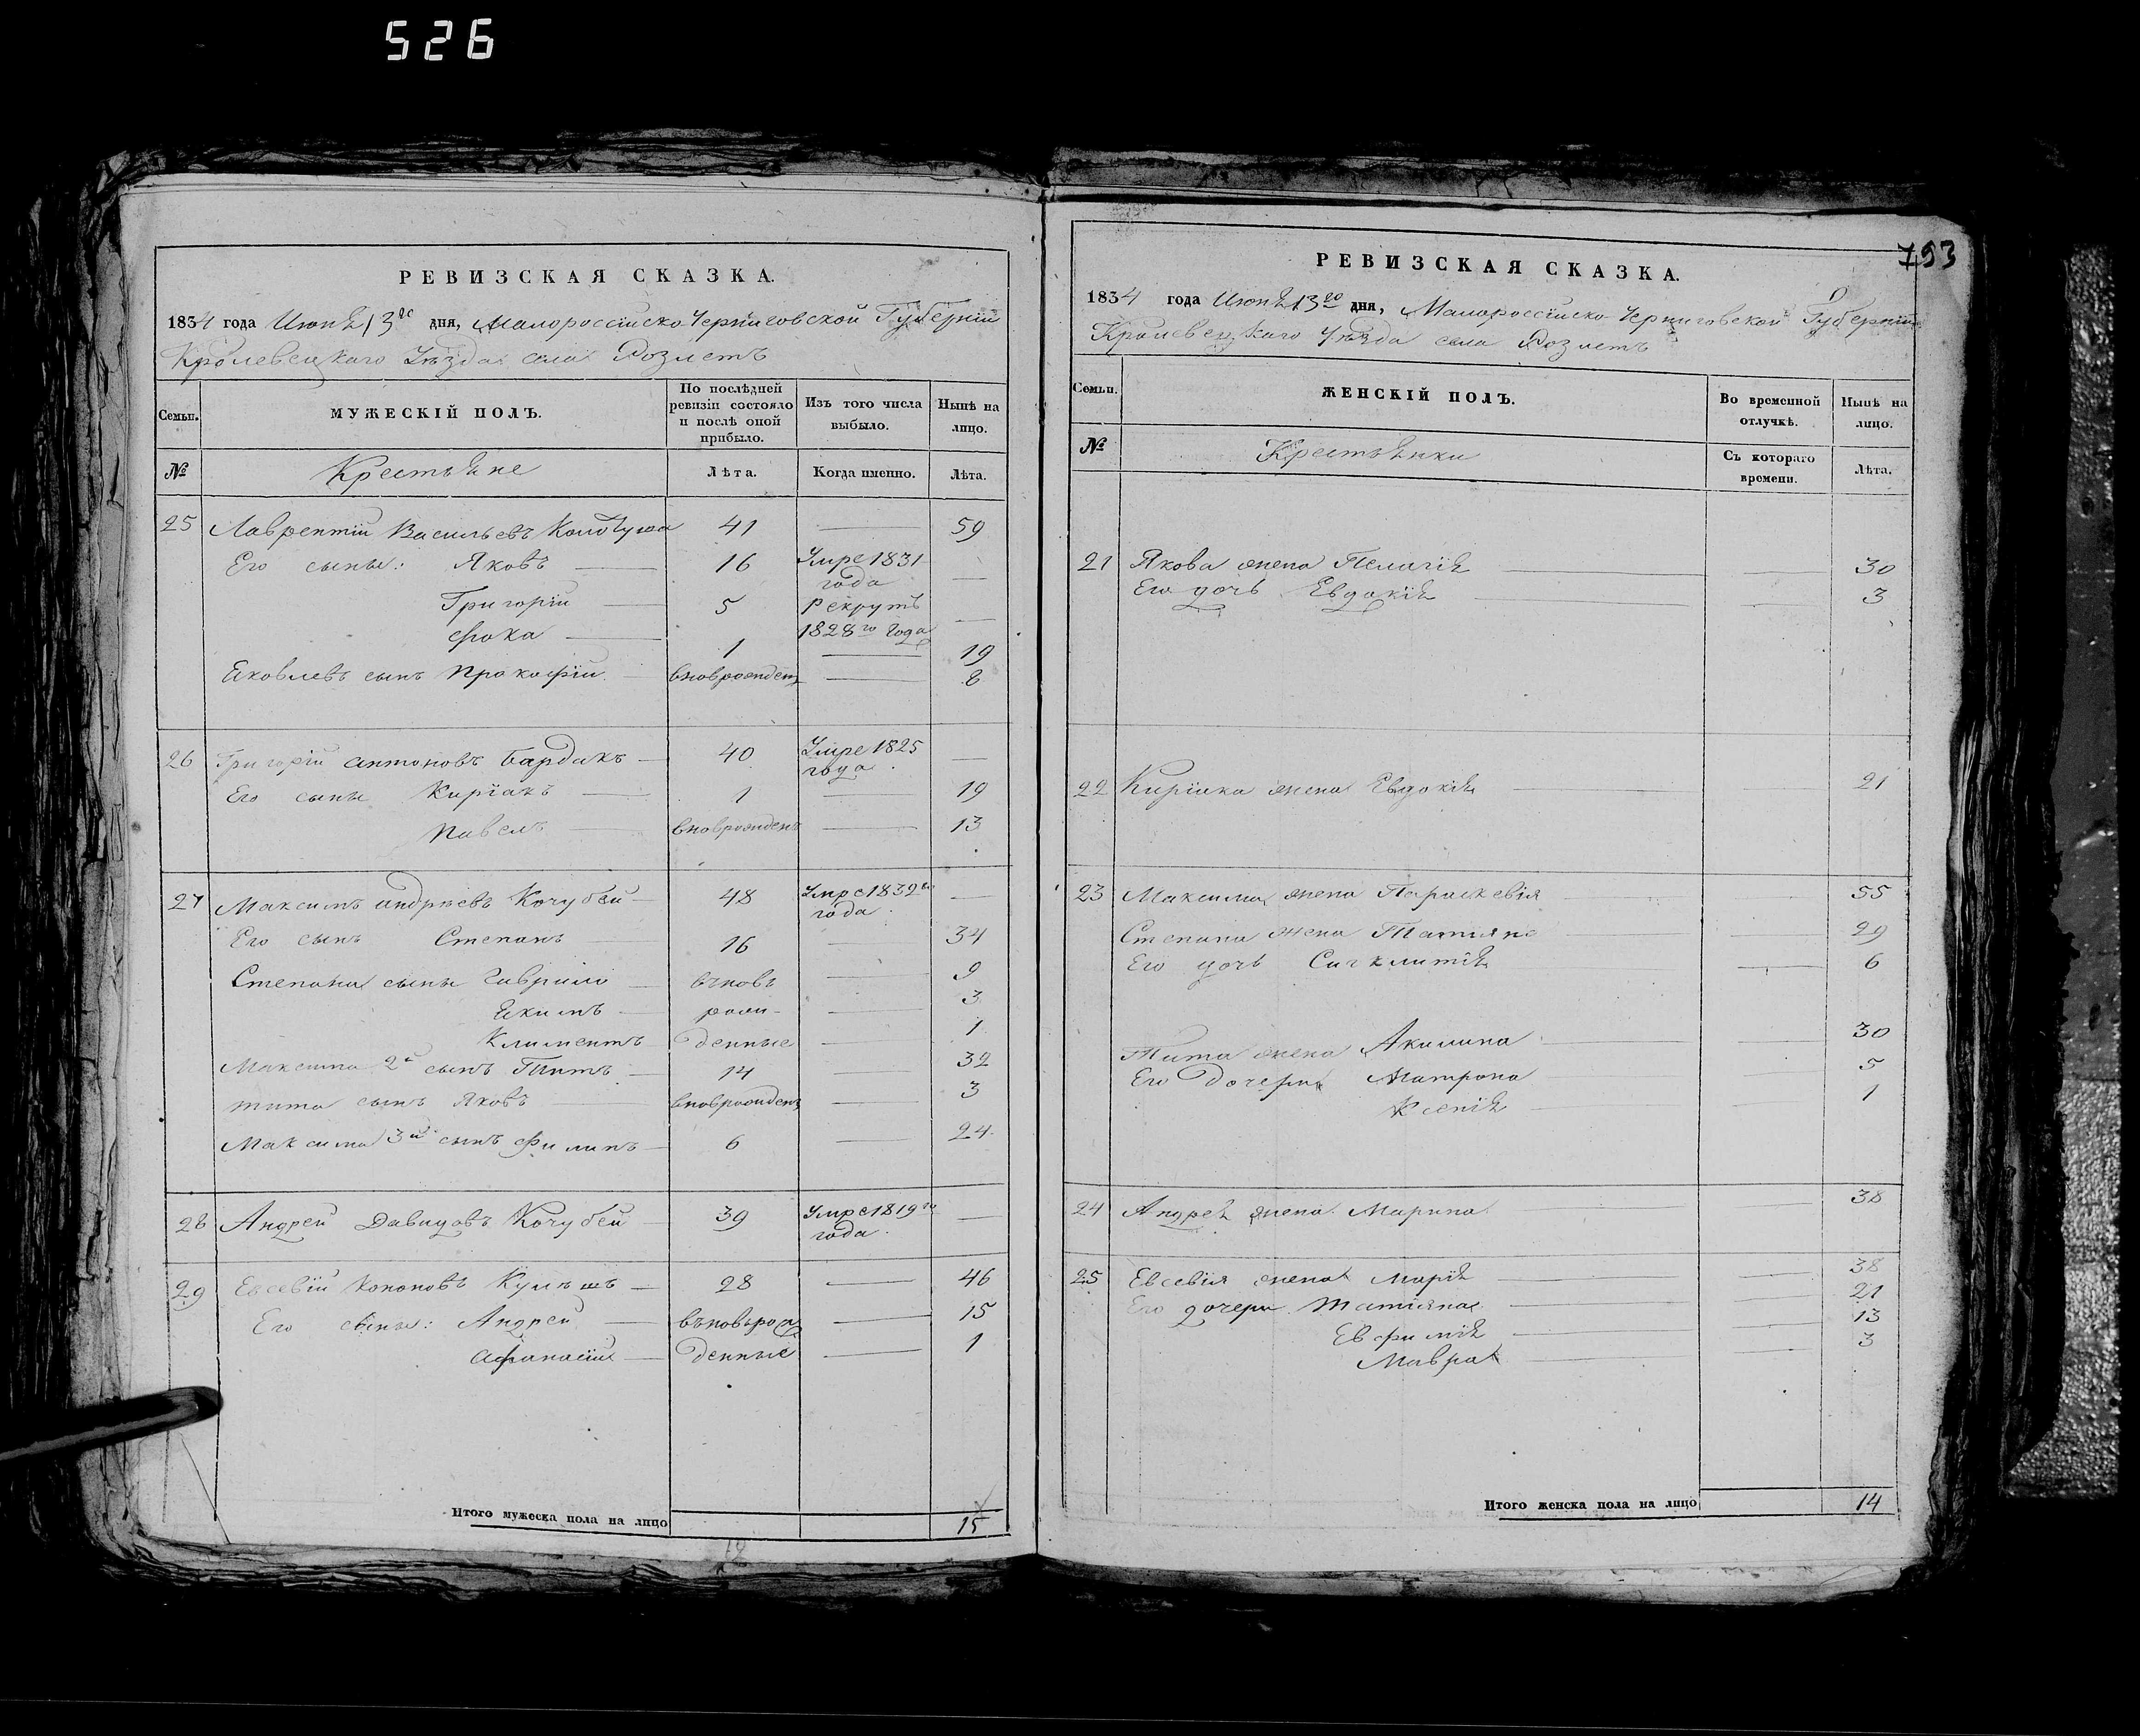 526
РЕВИЗСКАЯ СКАЗКА.
1834 года Июня 13го дня, Малороссійско Черниговской Губерніи
Кролевецкаго Уѣзда села Розлетъ
Семьи.
МУЖЕСКІЙ ПОЛЪ.
По послѣдней ревизіи состояло и послѣ оной прибыло.
Изъ того числа выбыло.
Нынѣ на лицо.
№ Крестьяне Лѣта. Когда именно. Лѣта.
25 Лаврентій Васильевъ 41 — 59
Его сыны: Яковъ — 16 Умре 1831 года —
Григорій — 5 Рекрутъ 1828го года —
Фока — 1 — 19
Яковлевъ сынъ Прокофій — вновърожден — 8
26 Григорій Антоновъ Бардакъ — 40 Умре 1825 года —
Его сыны Киріакъ — 1 — 19
Павелъ — вновърожденъ — 13
27 Максимъ Андрѣевъ Кочубей — 48 Умре 1832го года —
Его сынъ Степанъ 16 — 34
Степана сыны Гаврило — въновь — 9
Якимъ — рож- — 3
Климентъ денные — 1
Максима 2й сынъ Титъ — 14 — 32
Тита сынъ Яковъ — вновърожденъ — 3
Максима 3й сынъ Филипъ — 6 — 24
28 Андрей Давидовъ Кочубей — 39 Умре 1819го года —
29 Евсевій Кононовъ Кулѣшъ — 28 — 46
Его сыны: Андрей — въновьрож — 15
Афанасій — денные — 1
Итого мужеска пола на лицо 15
793
РЕВИЗСКАЯ СКАЗКА.
1834 года Июня 13го дня, Малороссійско Черниговской Губерніи
Кролевецкаго Уѣзда села Розлетъ
Семьи.
ЖЕНСКІЙ ПОЛЪ.
Во временной отлучкѣ.
Нынѣ на лицо.
№ Крестьянки Съ котораго времени. Лѣта.
21 Якова жена Пелагія — — 30
Его дочь Евдокія — — 3
22 Киріака жена Евдокія — — 21
23 Максима жена Параскевія — — 55
Степана жена Татіяна — — 29
Его дочь Сигклитія — 6
Тита жена Акилина — — 30
Его дочери Матрона — — 5
Ксенія — — 1
24 Андрея жена Марина — — 38
25 Евсевія жена Марія — — 38
Его дочери Татіяна — — 21
Евфимія — — 13
Мавра — — 3
Итого женска пола на лицо 14